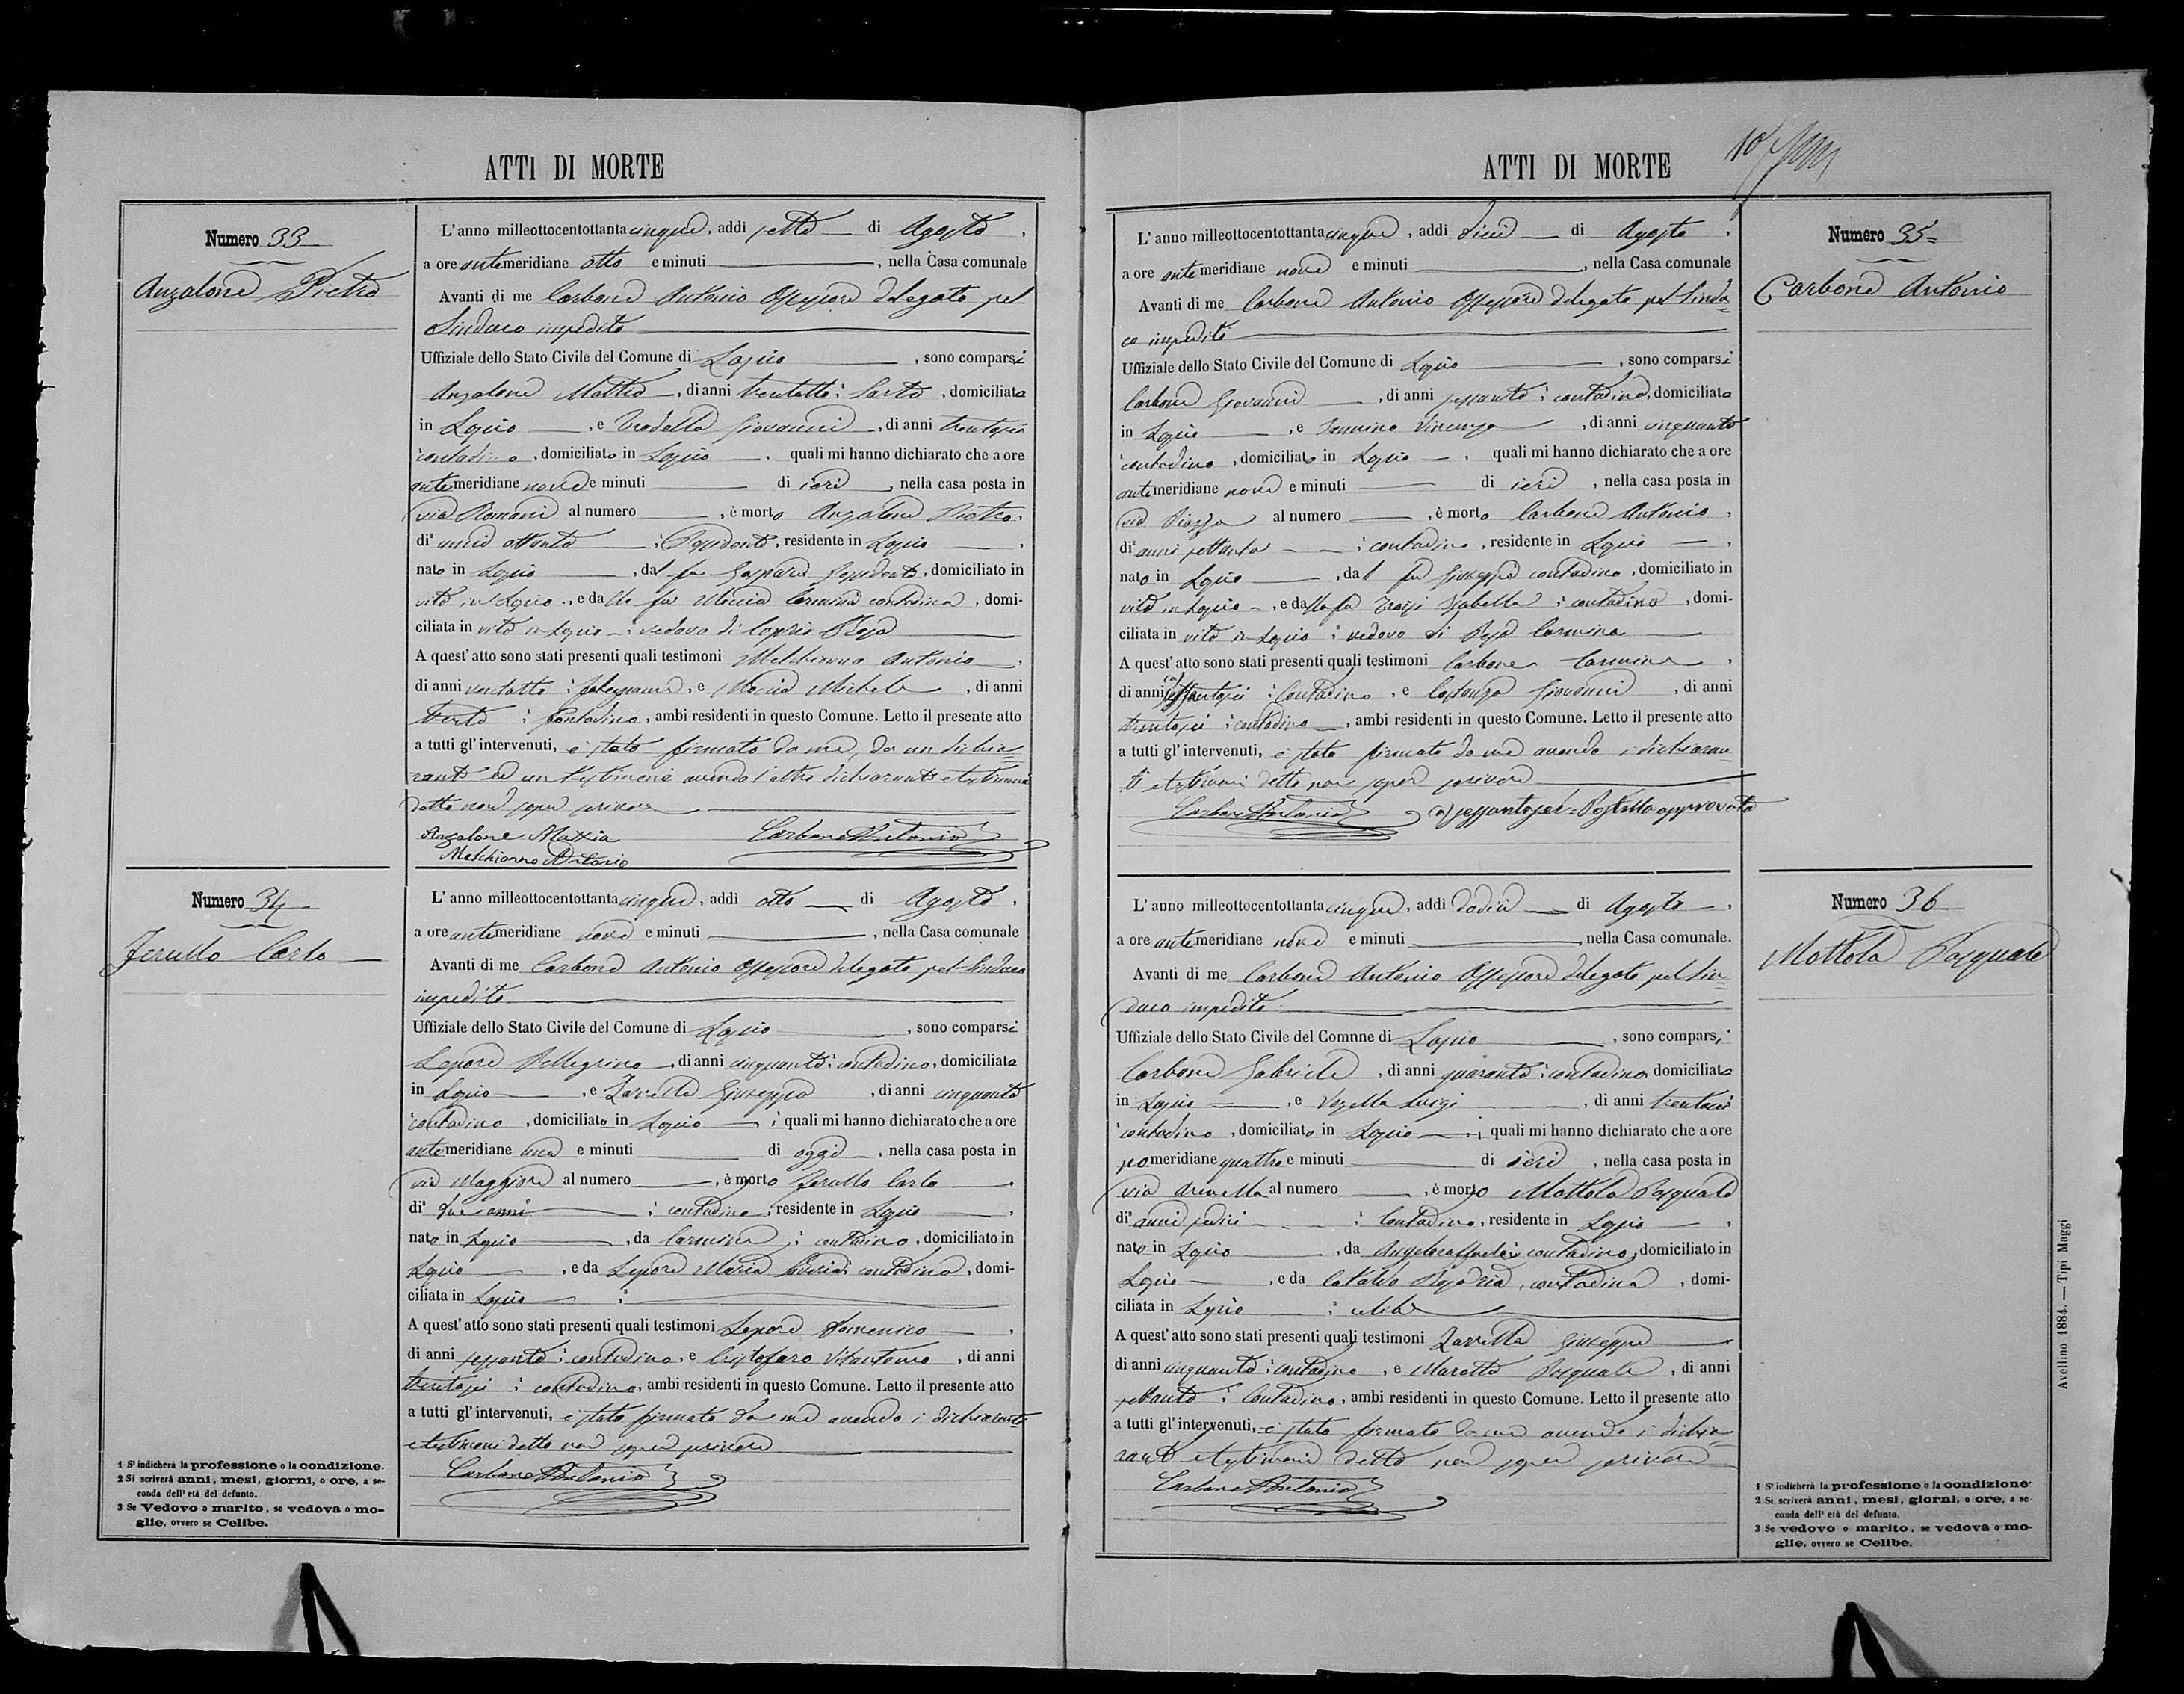 ATTI DI MORTE
Numero 33
Anzalone Pietro
L'anno milleottocentottantacinque, addi sette di Agosto,
a ore antemeridiane otto e minuti , nella Casa comunale
Avanti di me Carbone Antonio Assessore delegato pel
Sindaco impedito
Uffiziale dello Stato Civile del Comune di Lapio , sono comparsi
Anzalone Mattia, di anni ventotto; Sarto, domiciliato
in Lapio , e Giovanni , di anni trentasei
contadino, domiciliato in Lapio , quali mi hanno dichiarato che a ore
antemeridiane nove e minuti di ieri , nella casa posta in
via Romani al numero , è morto Anzalone Pietro,
di anni ottanta ; Possidente, residente in Lapio ,
nato in Lapio , dal fu Gaspare Possidente, domiciliato in
vita in Lapio, e dalla fu Carmina contadina, domi-
ciliata in vita in Lapio ; vedovo di Rosa
A quest'atto sono stati presenti quali testimoni Melchionno Antonio ,
di anni ventotto ; falegname, e Michele , di anni
trenta ; Contadino, ambi residenti in questo Comune. Letto il presente atto
a tutti gl'intervenuti, è stato firmato da me, da un dichia=
rante ed un testimone avendo l'altro dichiarante e testimone
detto non saper scrivere
Anzalone Mattia Carbone Antonio
Melchionno Antonio
Numero 34
Jerullo Carlo
L'anno milleottocentottantacinque, addi otto di Agosto,
a ore antemeridiane nove e minuti , nella Casa comunale
Avanti di me Carbone Antonio Assessore delegato pel Sindaco
impedito
Uffiziale dello Stato Civile del Comune di Lapio , sono comparsi
Lepore Pellegrino , di anni cinquanta; contadino, domiciliato
in Lapio , e Zarrella Giuseppe , di anni cinquanta
contadino , domiciliato in Lapio ; i quali mi hanno dichiarato che a ore
antemeridiane una e minuti di oggi , nella casa posta in
via Maggiore al numero , è morto Jerullo Carlo ,
di due anni ; contadino, residente in Lapio ,
nato in Lapio , da Carmine ; contadino, domiciliato in
Lapio , e da Lepore Maria contadina, domi-
ciliata in Lapio ;
A quest'atto sono stati presenti quali testimoni Lepore Domenico ,
di anni sessanta ; contadino, e Cristofaro Vitantonio , di anni
trentasei ; contadino, ambi residenti in questo Comune. Letto il presente atto
a tutti gl'intervenuti, è stato firmato da me avendo i dichiaranti
e testimoni detto non saper scrivere
Carbone Antonio
1 S'indicherà la professione o la condizione.
2 Si scriverà anni, mesi, giorni, o ore, a se-
conda dell'età del defunto.
3 Se Vedovo o marito, se vedova o mo-
glie, ovvero se Celibe.
ATTI DI MORTE
10
Numero 35=
Carbone Antonio
L'anno milleottocentottantacinque, addi dieci di Agosto,
a ore antemeridiane nove e minuti , nella Casa comunale
Avanti di me Carbone Antonio Assessore delegato pel Sinda=
co impedito
Uffiziale dello Stato Civile del Comune di Lapio , sono comparsi
Carbone Giovanni , di anni sessanta; contadino, domiciliato
in Lapio , e Vincenzo , di anni cinquanta
contadino, domiciliato in Lapio , quali mi hanno dichiarato che a ore
antemeridiane nove e minuti di ieri , nella casa posta in
via Piazza al numero , è morto Carbone Antonio,
di anni settanta ; contadino, residente in Lapio ,
nato in Lapio , dal fu Giuseppe contadino, domiciliato in
vita in Lapio , e dalla fu Isabella ; contadina, domi-
ciliata in vita in Lapio ; vedovo di Carmina
A quest'atto sono stati presenti quali testimoni Carbone Carmine ,
di anni (a) ; Contadino , e Costanza Giovanni , di anni
trentasei ; contadino , ambi residenti in questo Comune. Letto il presente atto
a tutti gl'intervenuti, è stato firmato da me avendo i dichiaran=
ti e testimoni detto non saper scrivere
Carbone Antonio (a) sessantasei = Postilla approvata
Numero 36
Mottola Pasquale
L'anno milleottocentottantacinque, addi dodici di Agosto ,
a ore antemeridiane nove e minuti , nella Casa comunale.
Avanti di me Carbone Antonio Assessore delegato pel Sin=
daco impedito
Uffiziale dello Stato Civile del Comnne di Lapio , sono comparsi
Carbone Gabriele , di anni quaranta; contadino, domiciliato
in Lapio , e Luigi , di anni trentasei
contadino , domiciliato in Lapio ; i quali mi hanno dichiarato che a ore
pomeridiane quattro e minuti di ieri , nella casa posta in
via Arenella al numero , è morto Mottola Pasquale
di anni sedici ; Contadino, residente in Lapio ,
nato in Lapio , da Angeloraffaele; contadino, domiciliato in
Lapio , e da Cataldo Rosaria, contadina , domi-
ciliata in Lapio ; celibe
A quest'atto sono stati presenti quali testimoni Zarrella Giuseppe
di anni cinquanta ; contadino , e Marotta Pasquale , di anni
settanta ; Contadino, ambi residenti in questo Comune. Letto il presente atto
a tutti gl'intervenuti, è stato firmato da me avendo i dichia=
ranti e testimoni detto non saper scrivere
Carbone Antonio
1 S'indicherà la professione o la condizione.
2 Si scriverà anni, mesi, giorni, o ore, a se-
conda dell'età del defunto.
3 Se vedovo o marito, se vedova o mo-
glie, ovvero se Celibe.
Avellino 1884. — Tipi Maggi